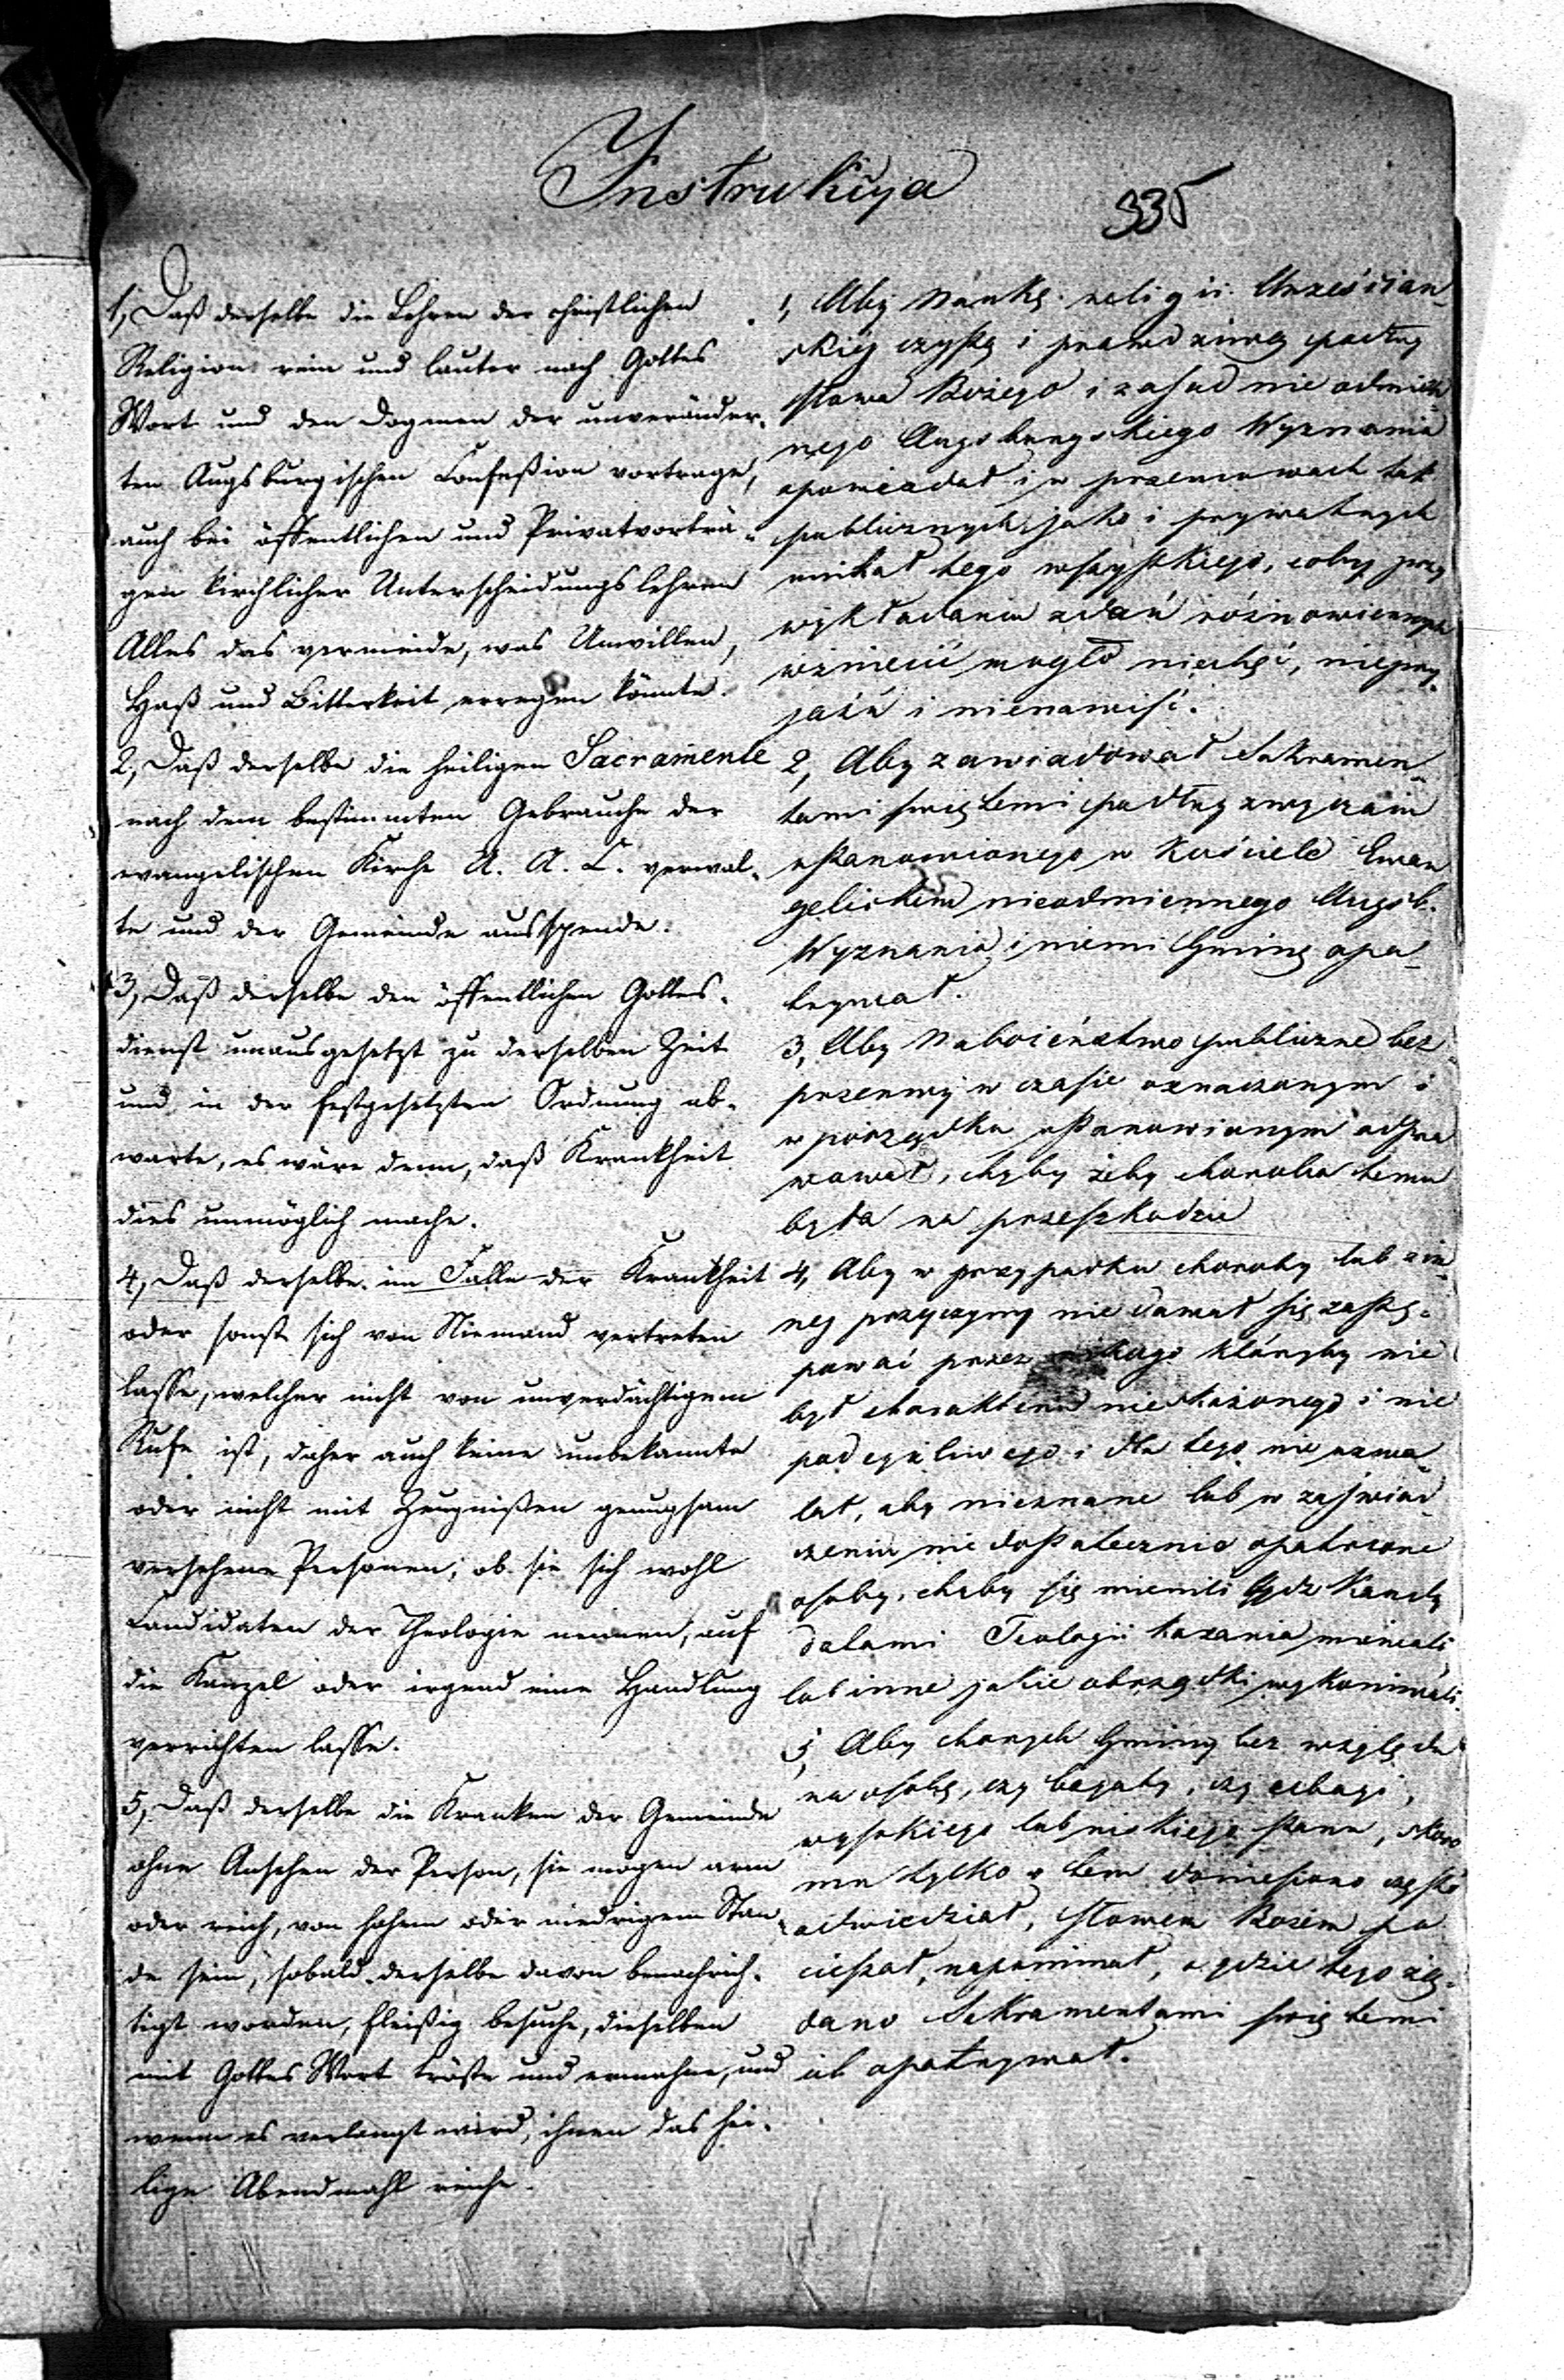 Instrukcya
335
1, Daß derselbe die Lehren der christlichen
Religion rein und lauter nach Gottes
Wort und den Dogmen der unveränder-
ten Augsburgischen Confeßion vortrage,
auch bei öffentlichen und Privatvorträ-
gen kirchlicher Unterscheidungslehren
Alles das vermeide, was Unwillen,
Haß und Bitterkeit erregen könnte.
2, Daß derselbe die heiligen Sacramente
nach dem bestimmten Gebrauche der
evangelischen Kirche U. A. C. verwal-
te und der Gemeinde ausspende.
3, Daß derselbe den öffentlichen Gottes-
dienst unausgesetzt zu derselben Zeit
und in der festgesetzten Ordnung ab-
warte, es wäre denn, daß Krankheit
dies unmöglich mache.
4, Daß derselbe im Falle der Krankheit
oder sonst sich von Niemand vertreten
lasse, welcher nicht von unverdächtigem
Rufe ist, daher auch keine unbekannte
oder nicht mit Zeugnißen genugsam
versehene Personen, ob sie sich wohl
Candidaten der Theologie nennen, auf
die Kanzel oder irgend eine Handlung
verrichten lasse.
5, Daß derselbe die Kranken der Gemeinde
ohne Ansehen der Person, sie mögen arm
oder reich, von hohem oder niedrigem Stan-
de sein, sobald derselbe davon benachrich-
tigt worden, fleißig besuche, dieselben
mit Gottes Wort tröste und ermahne, und
wenn es verlangt wird, ihnen das hei-
lige Abendmahl reiche.
1, Aby Naukę religii Chrześcian-
skiey czystą i prawdziwą podług
słowa Bożego i zasad nieodmien
nego Augsburgskiego Wyznania
opowiadał i w przemowach tak
publicznych jako i prywatnych
unikał tego wszystkiego, coby przy
wykładaniu zdań różnowierczych
wzniecić mogło niechęć, nieprzy-
jaźń i nienawiść.
2, Aby zawiadował Sakramen-
tami świętemi podług zwyczaiu
ustanowionego w Kościele Ewan
gelickim nieodmiennego Augsb.
Wyznania i niemi Gminę opa-
trywał.
3, Aby Nabożeństwo publiczne bez
przerwy w czasie oznaczonym i
w porządku ustanowionym odpra
wował, chyby żeby choroba temu
była na przeszkodzie
4, Aby w przypadku choroby lub in-
ney przyczyny nie dawał się zastę-
pować przez nikogo któryby nie
był charakteru nieskażonego i nie
podeyźliwego i dla tego nie zezwa-
lał, aby nieznane lub w zaświad
czenia niedostatecznie opatrzone
osoby, choby się mienili bydz Kandy
datami Teologii kazania miewali
lub inne jakie obrządki wykonywali.
5, Aby chorych Gminy bez względu
na osobę, czy bogaty, czy ubogi,
wysokiego lub niskiego stanu, skoro
mu tylko o tem doniesiono często
odwiedzał, słowem Bożem po
cieszał, napominał, a gdzie tego żą-
dano Sakramentami świętemi
ich opatrywał.